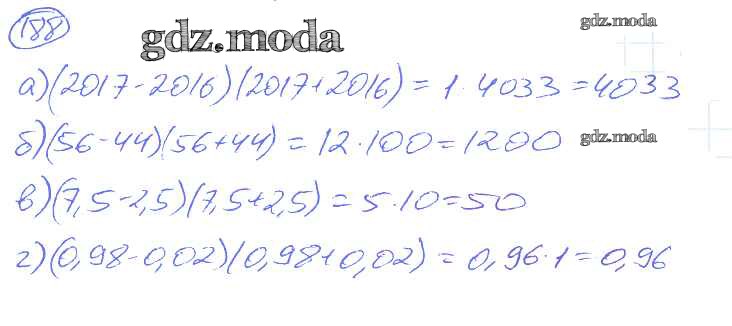 188
gdz.moda
gdz.moda
а) (2017-2016)(2017+2016) = 1·4033 = 4033
б) (56-44)(56+44) = 12·100 = 1200
gdz.moda
в) (7,5-2,5)(7,5+2,5) = 5·10 = 50
г) (0,98-0,02)(0,98+0,02) = 0,96·1 = 0,96